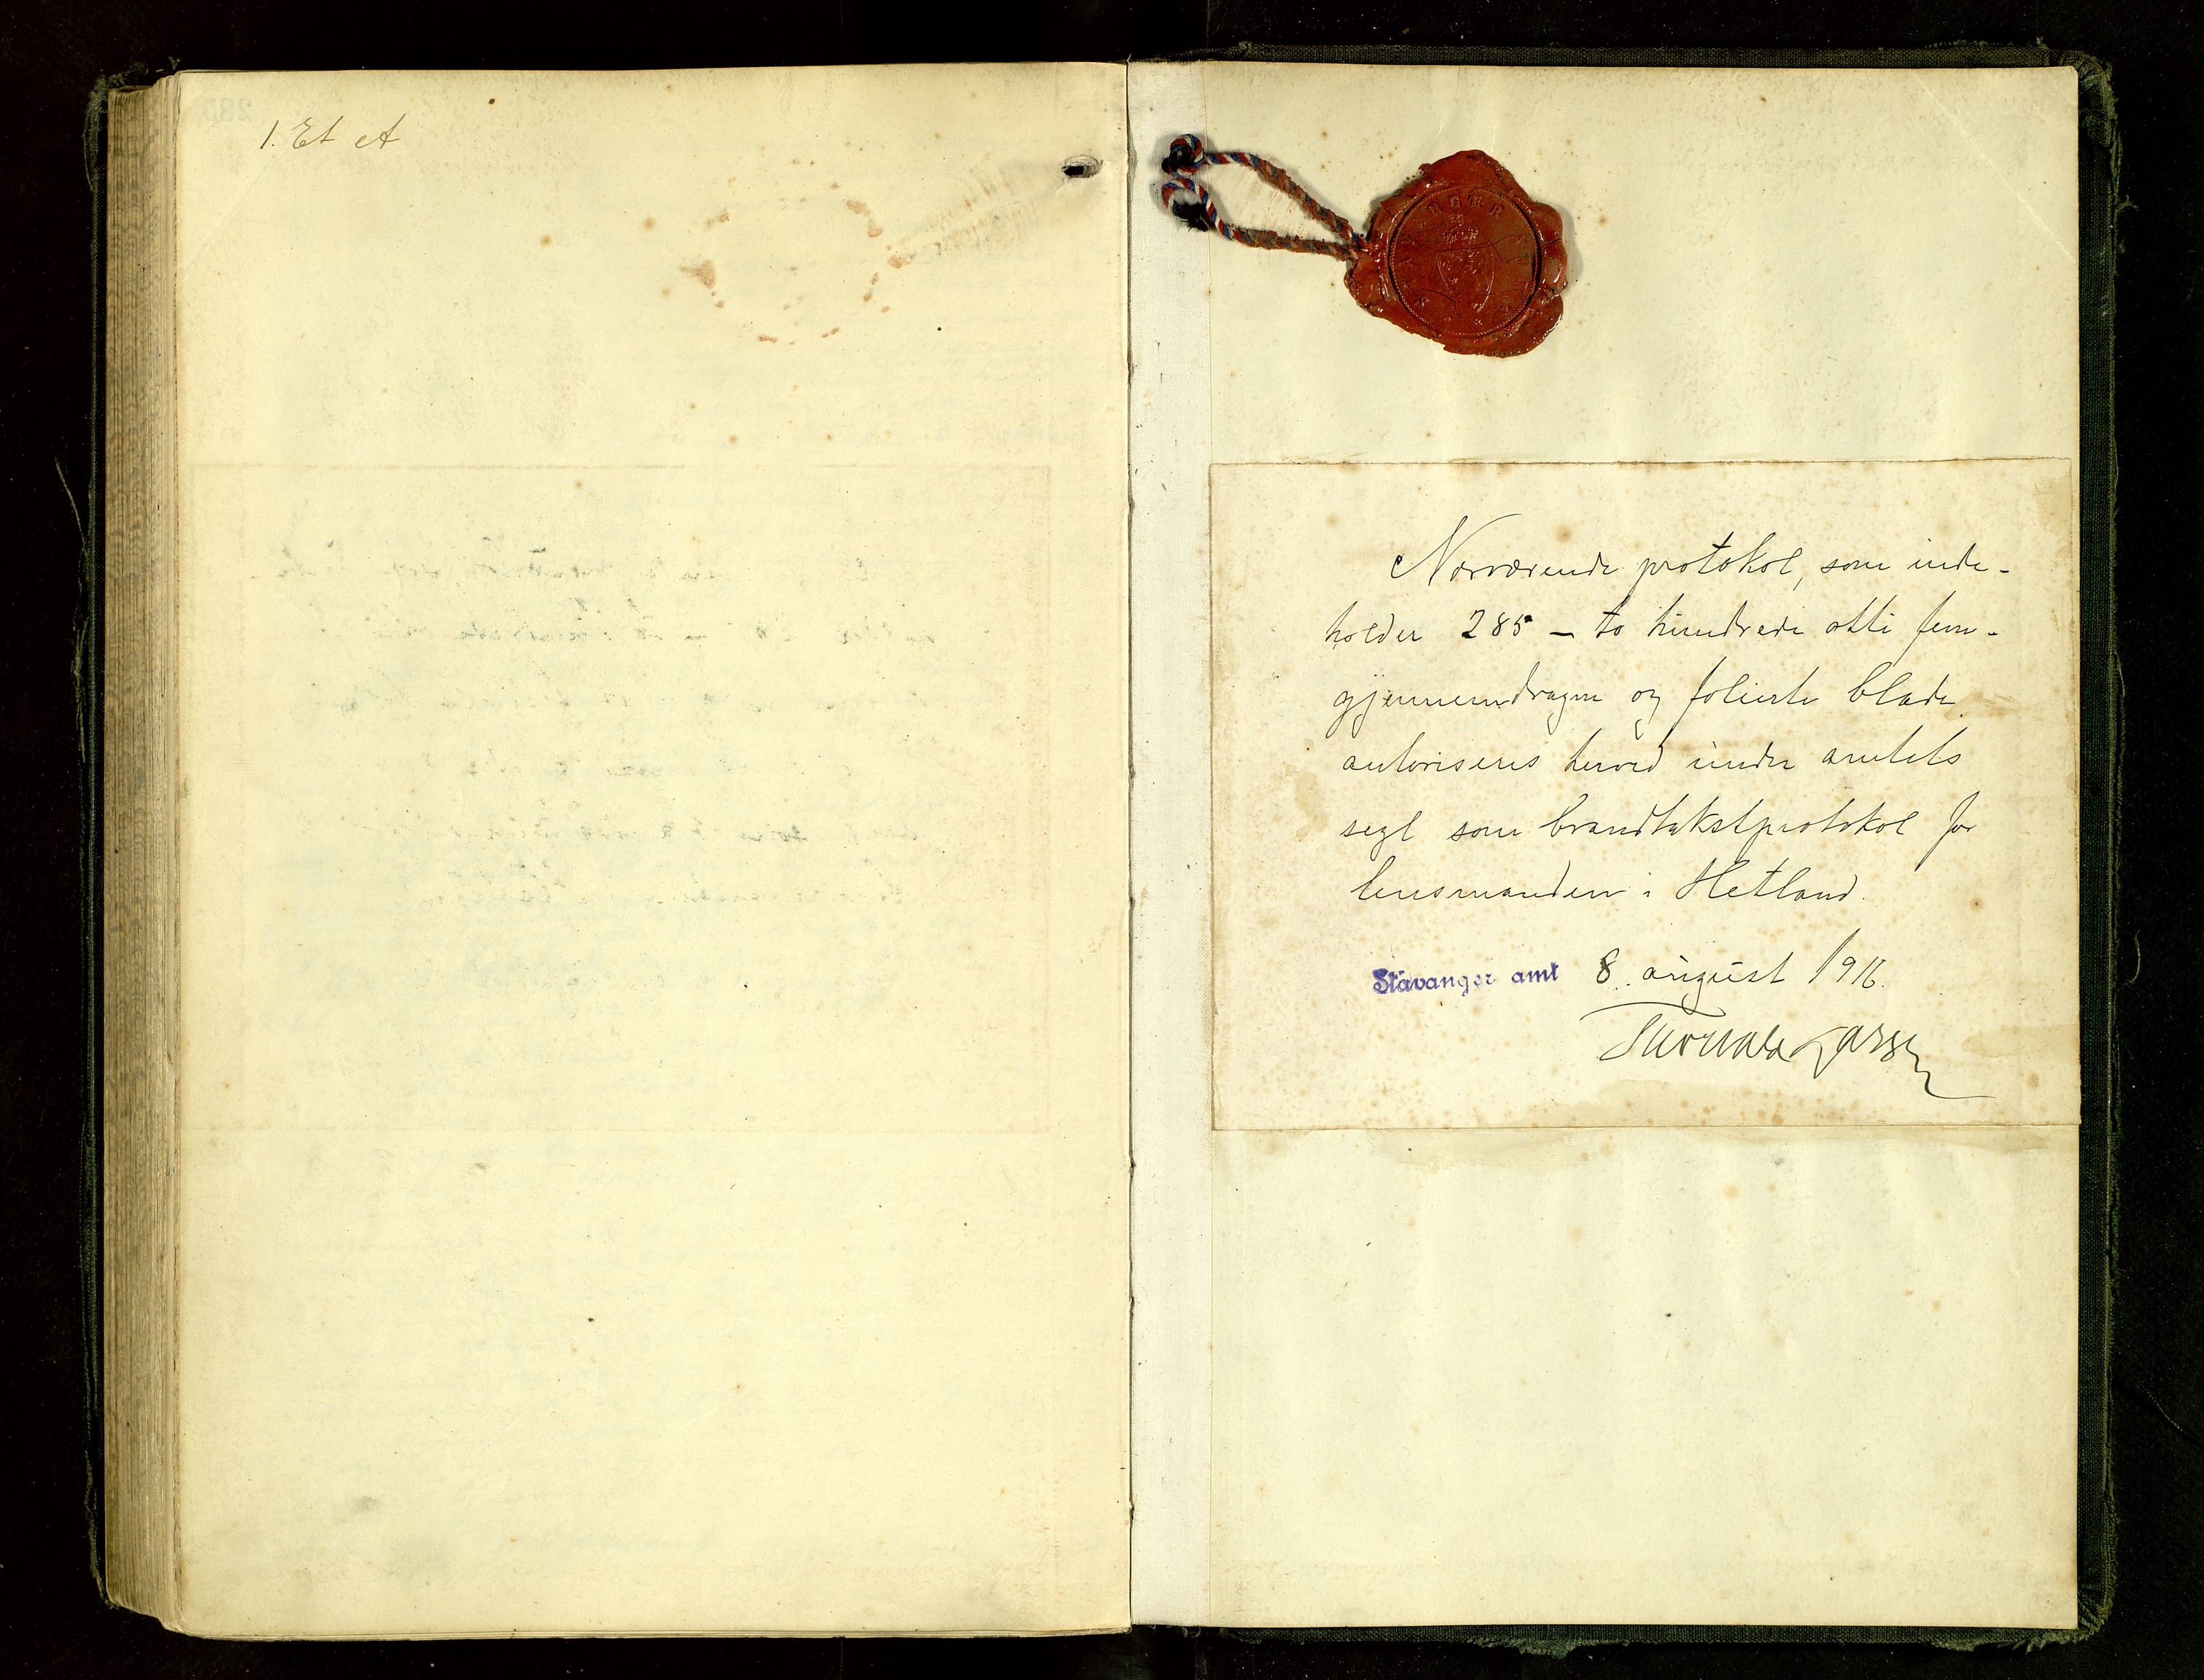 1. Et et
Nærværende protokol, som inde-
holder 285 – to hundrede otti fem -
gjennemdragne og folierte blade
autoriseres herved under amtets
segl som brandtakstprotokol for
lensmanden i Hetland.
Stavanger amt 8. august 1916.
Thorvald Larsen